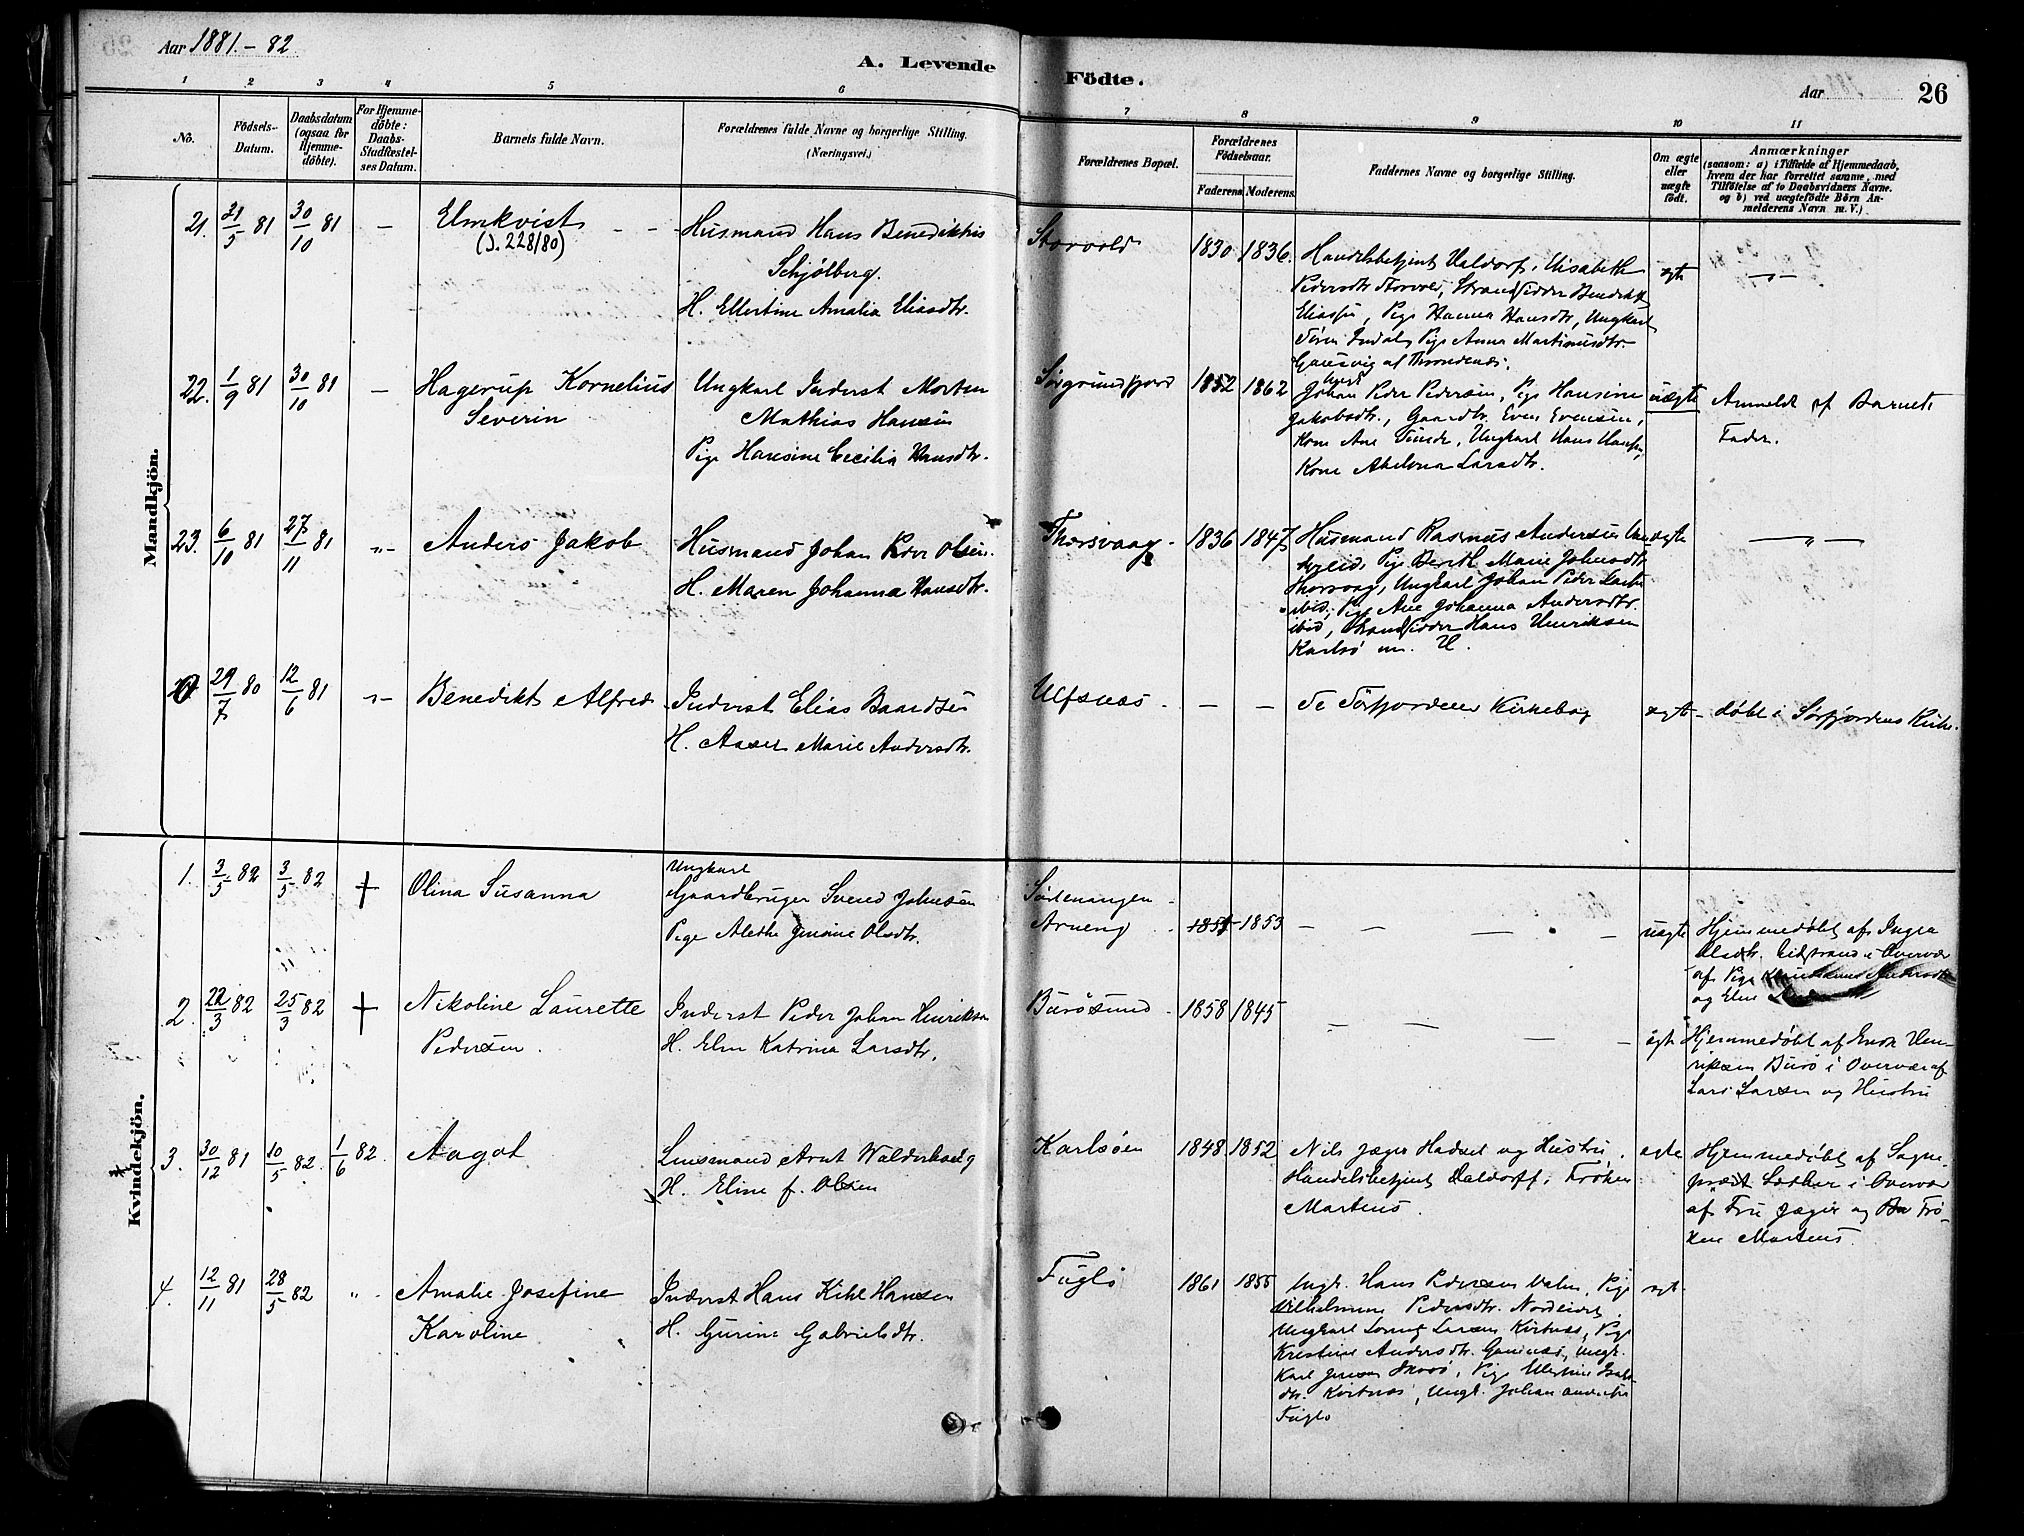 Aar 1881.-82
A. Levende
Födte.
Aar
26
1 2 3 4 5 6 7 8 9 10 11
No.
Födsels-Datum.
Daabsdatum (ogsaa for Hjemmedöbte).
For Hjemmedöbte: Daabs-Stadfæstelses Datum.
Barnets fulde Navn.
Forældrenes fulde Navne og borgerlige Stilling. (Næringsvei.)
Forældrenes Bopæl.
Forældrenes Födselsaar.
Faderens Moderens.
Faddernes Navne og borgerlige Stilling.
Om ægte eller uægte født.
Anmærkninger
(saasom: a) i Tilfælde af Hjemmedaab,
hvem der har forrettet samme, med
Tilföielse af to Daabsvidners Navne.
og b) ved uægtefödte Börn An-
melderens Navn m. V.)
Mandkjön.
21. 21/5 81 30/10 81 - Elmkvist - - Husmand Hans Benedikt
(J. 228/80)
Schjölberg.
H. Ellertine Amalia Eliasdtr.
Storvold 1830 1836.
Handelsbetjent Valdorf, Elisabeth
Pedersdtr Storvold, Strandsidder Benedikt
Elias, Pige Hanna Hansdtr, Ungkarl
Sören Indal, Pige Anna Martinusdtr.
Gausvig af Throndenæs.
egte -"-
22. 1/9 81 30/10 81 - Hagerup Kornelius
Severin
Ungkarl Inderst Morten
Mathias Hansen
Pige Hansine Cecilia Hansdtr.
Sörgrundfjord 1852 1862
Johan Peder Pedersen, Pige Hansine
Jakobsdtr., Gaardbr. Even Evensen,
Kone Ane, Ungkarl Hans
Kone Abelona Larsdtr.
uægte
Anmeldt af Barnets
Fader.
23. 6/10 81 27/11 81 -"- Anders Jakob
Husmand Johan Peder Olsen.
H. Maren Johanna Hansdtr.
Thorsvaag - 1836 1847
Husmand Rasmus Andersen
Pige Berith Marie Johnsdtr
Thorsvag, Ungkarl Johan Peder
ibid, Pige Ane Johanna Andersdtr.
ibid, Strandsidder Hans Henriksen
Karlsö m. H.
egte -"-
29/7 80 12/6 81 -"- Benedikt Alfred
Inderst Elias Baardsen
H. Marie Andersdtr.
Ulfsnæs. - -
Se Sörfjordens Kirkebog
egte - döbt i Sörfjordens Kirke.
Kvindekjön.
1. 3/5 82 3/5 82 † Olina Susanna
Ungkarl
Gaardbruger Svend Johnsen
Pige Alethe Olsdtr.
Sörlenangen -
Arneng - 1853
uægte
Hjemmedöbt af Inger
Olsdtr. i Overvær
af Pige
og Eline
2. 22/3 82 25/3 82 † Nikoline Laurette
Pedersen.
Inderst Peder Johan Henriksen
H. Elen Katrina Larsdtr,
Burösund - 1858 1845
egt
Hjemmedöbt af Enok Hen-
riksen Burö i Overvær af
Lars Larsen og Hustru
3. 30/12 81 10/5 82. 1/6 82. Aagot
Lensmand Arnt Walderhaug
H. Eline f. Olsen
Karlsöen 1848 1852
Nils Jæger Hadsel og Hustru,
Handelsbetjent Valdorff, Fröken
Martens.
egte
Hjemmedöbt af Sogne-
præst i Overvær
af Fru Jæger og Frö-
ken Martens.
4. 12/11 81 28/5 82 "- Amalie Josefine
Karoline
Inderst Hans Kihl Hansen
H. Gurine Gabrielsdtr.
Fuglö 1861 1855
Ungk. Hans Pedersen, Pige
Vilhelmine Pedersdtr. Nordeidet,
Ungkarl Larsen, Pige
Kristine Andersdtr. Ungk.
Karl Jensen, Pige
dtr., Ungk. Johan
Fuglö
egt.